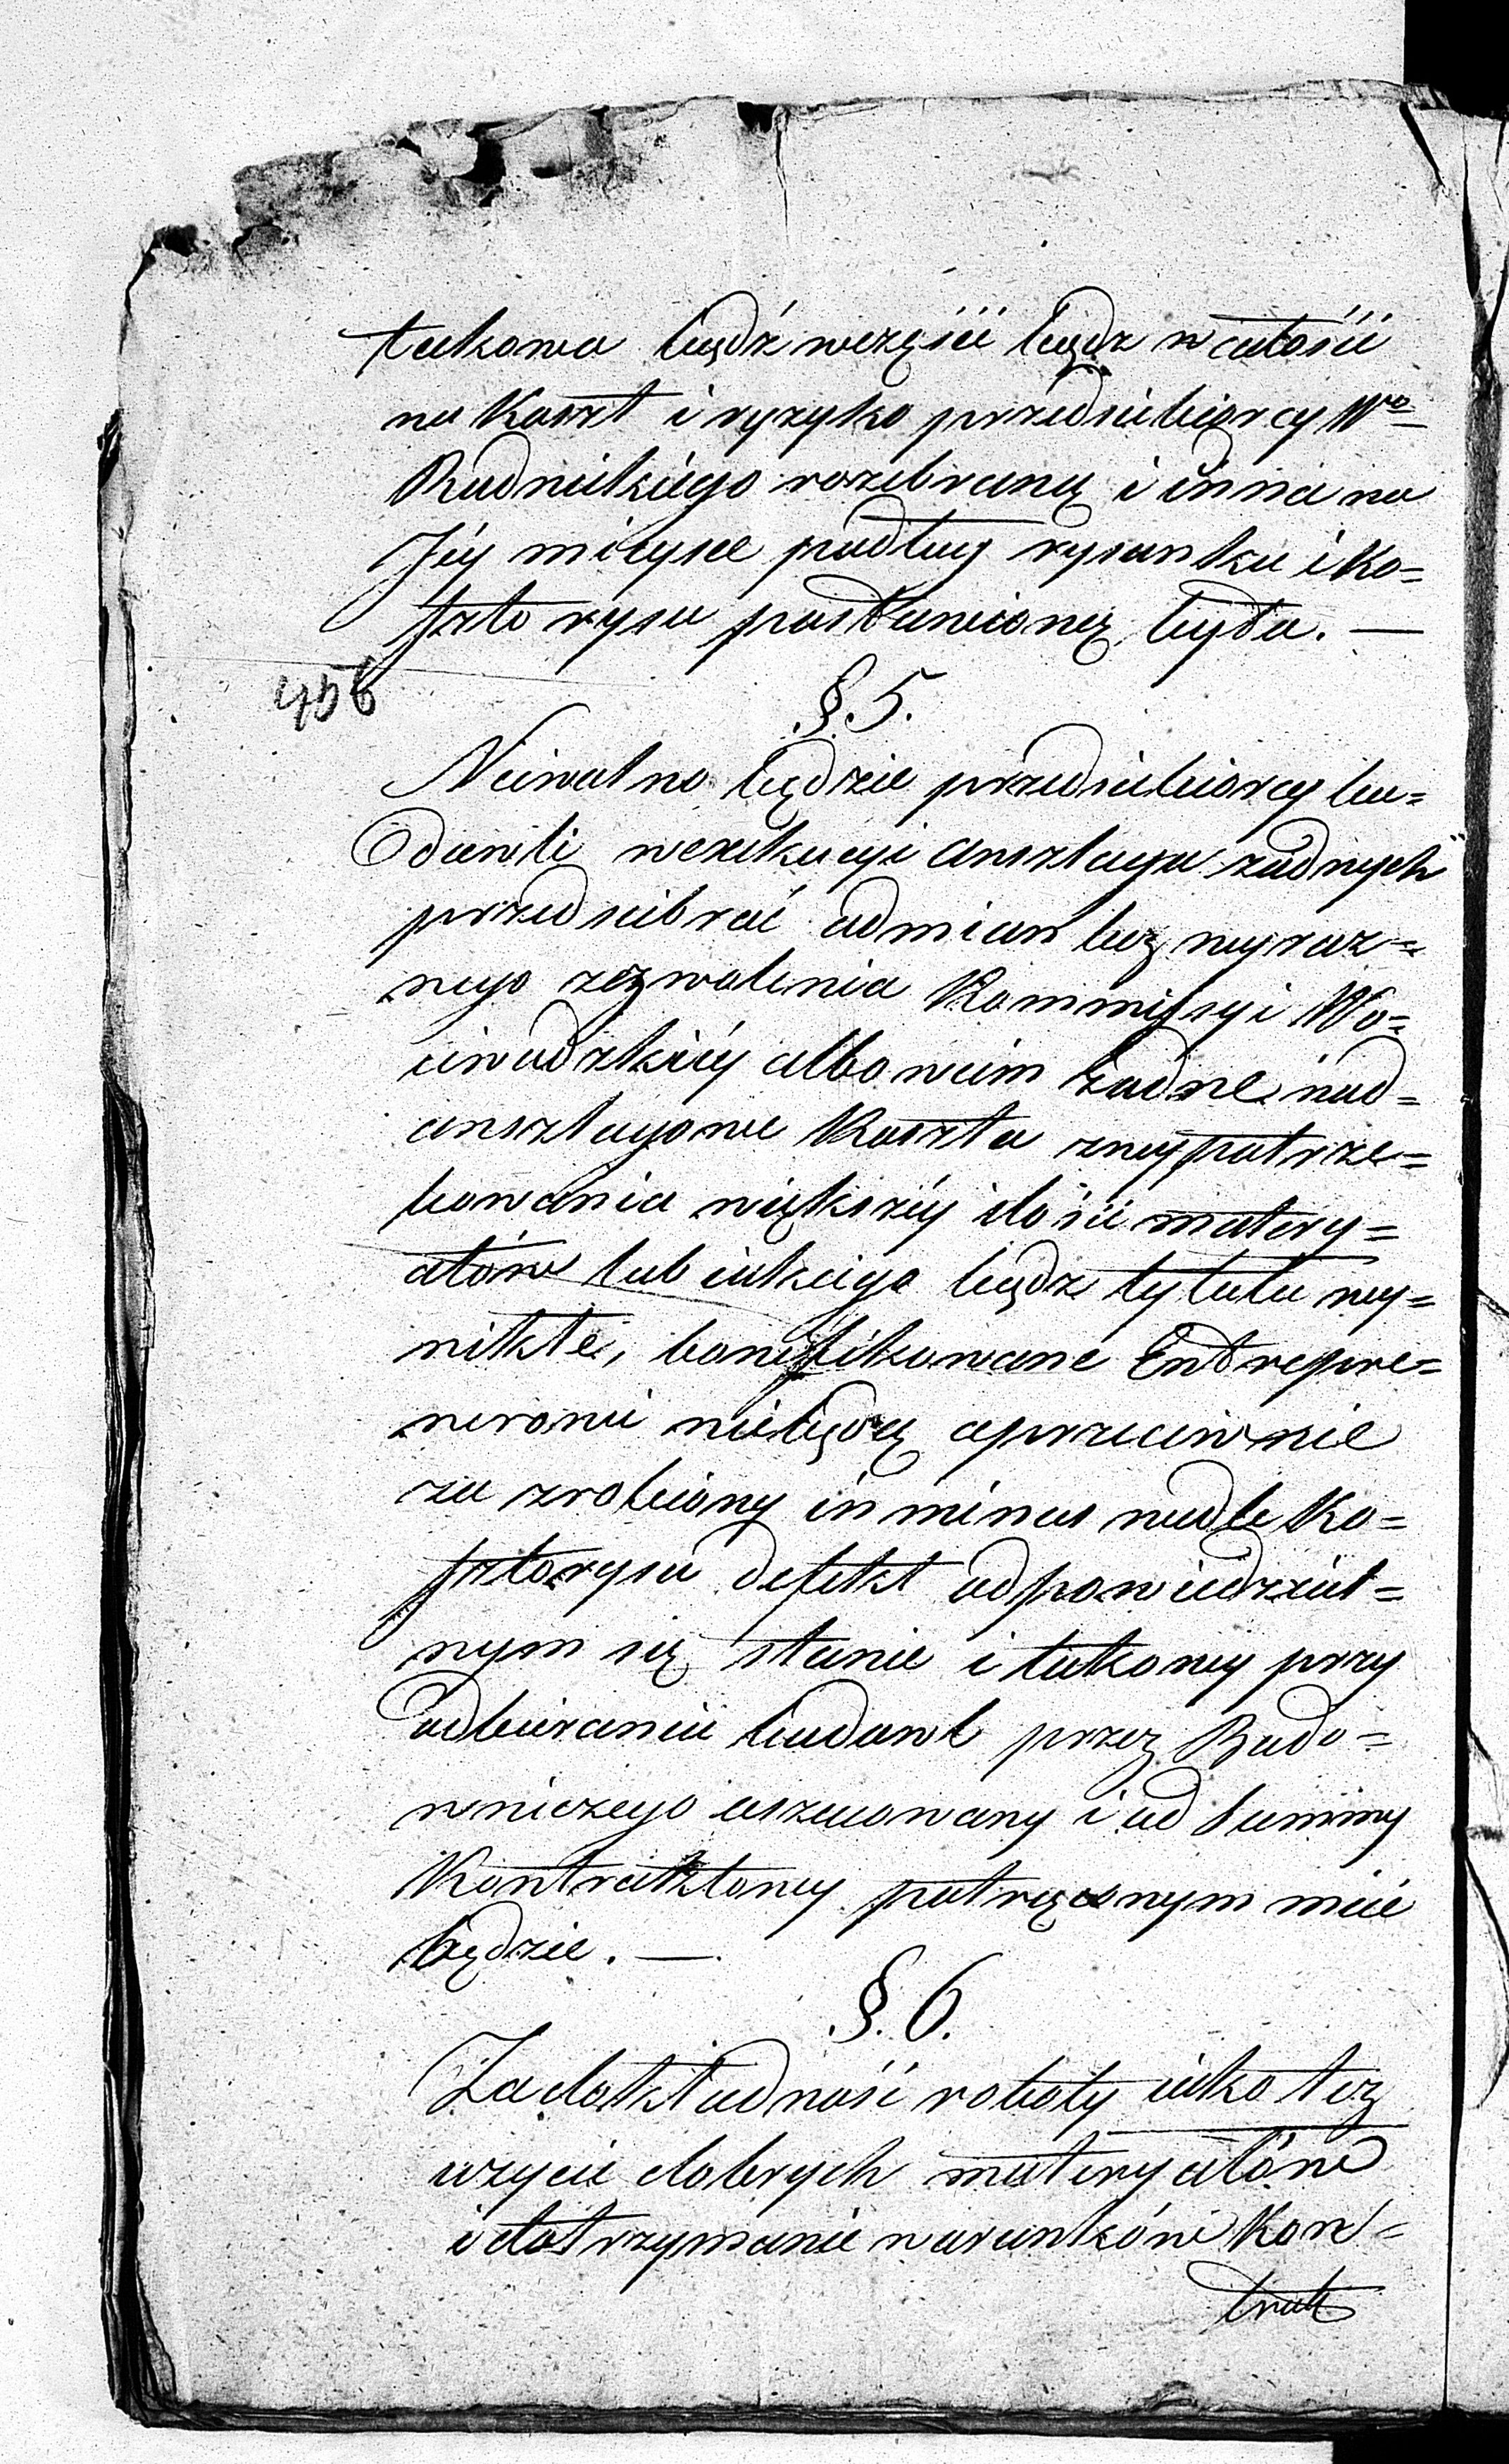 takowa bądź wczęści bądz w całości
na koszt i ryzyko przedsiebiorcy Wgo
Rudnickiego rozebraną i inna na
Jéy mieysce podług rysunku i ko=
sztorysu postawioną była. —
§. 5.
Niewolno będzie przedsiebiorcy bu=
dowli wexekucyi anszlagu żadnych
przedsiebrać odmian bez wyraz=
nego zezwolenia Kommissyi Wo=
iewodzkiéy albowiem żadne nad=
anszlagowe koszta zwypotrze=
bowania większéy ilości matery=
ałów lub iakiego bądz tytułu wy=
nikłe, bonifikowane Entrepre=
nerowi niebędą aprzeciwnie
za zrobiony in minus wedle ko=
sztorysu defekt odpowiedzial=
nym się stanie i takowy przy
odbieraniu budowl przez Budo=
wniczego uszacowany i od summy
Kontraktowey potrąconym mieć
będzie. —
§. 6.
Za dokładność roboty iako tez
uzycie dobrych materyałów
i dotrzymanie warunków Kon=
trak